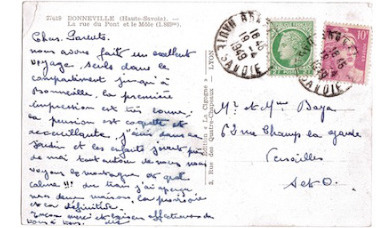 37619 BONNEVILLE (Haute-Savoie). —
La rue du Pont et le Môle (1.869m).
Chers Parents.
nous avons fait un excellent
voyage, seuls dans le
compartiment jusqu'à
Bonneville. la première
impression est très bonne.
la pension est coquette et
accueillante, j'ai une
jardin et les enfants jouent près
de moi tout autour de nous
voyons les montagnes et quel
calme !!! du train j'ai aperçu
nos deux maisons. la provisoire
et la définitive.
Encore merci et baisers affectueux de
nous
Edition « La Cigogne »
2, Rue des Quatre-Chapeaux — LYON
HAUTE SAVOIE
Mr et Mme Baya
63 rue Champ la garde
Versailles
S et O.